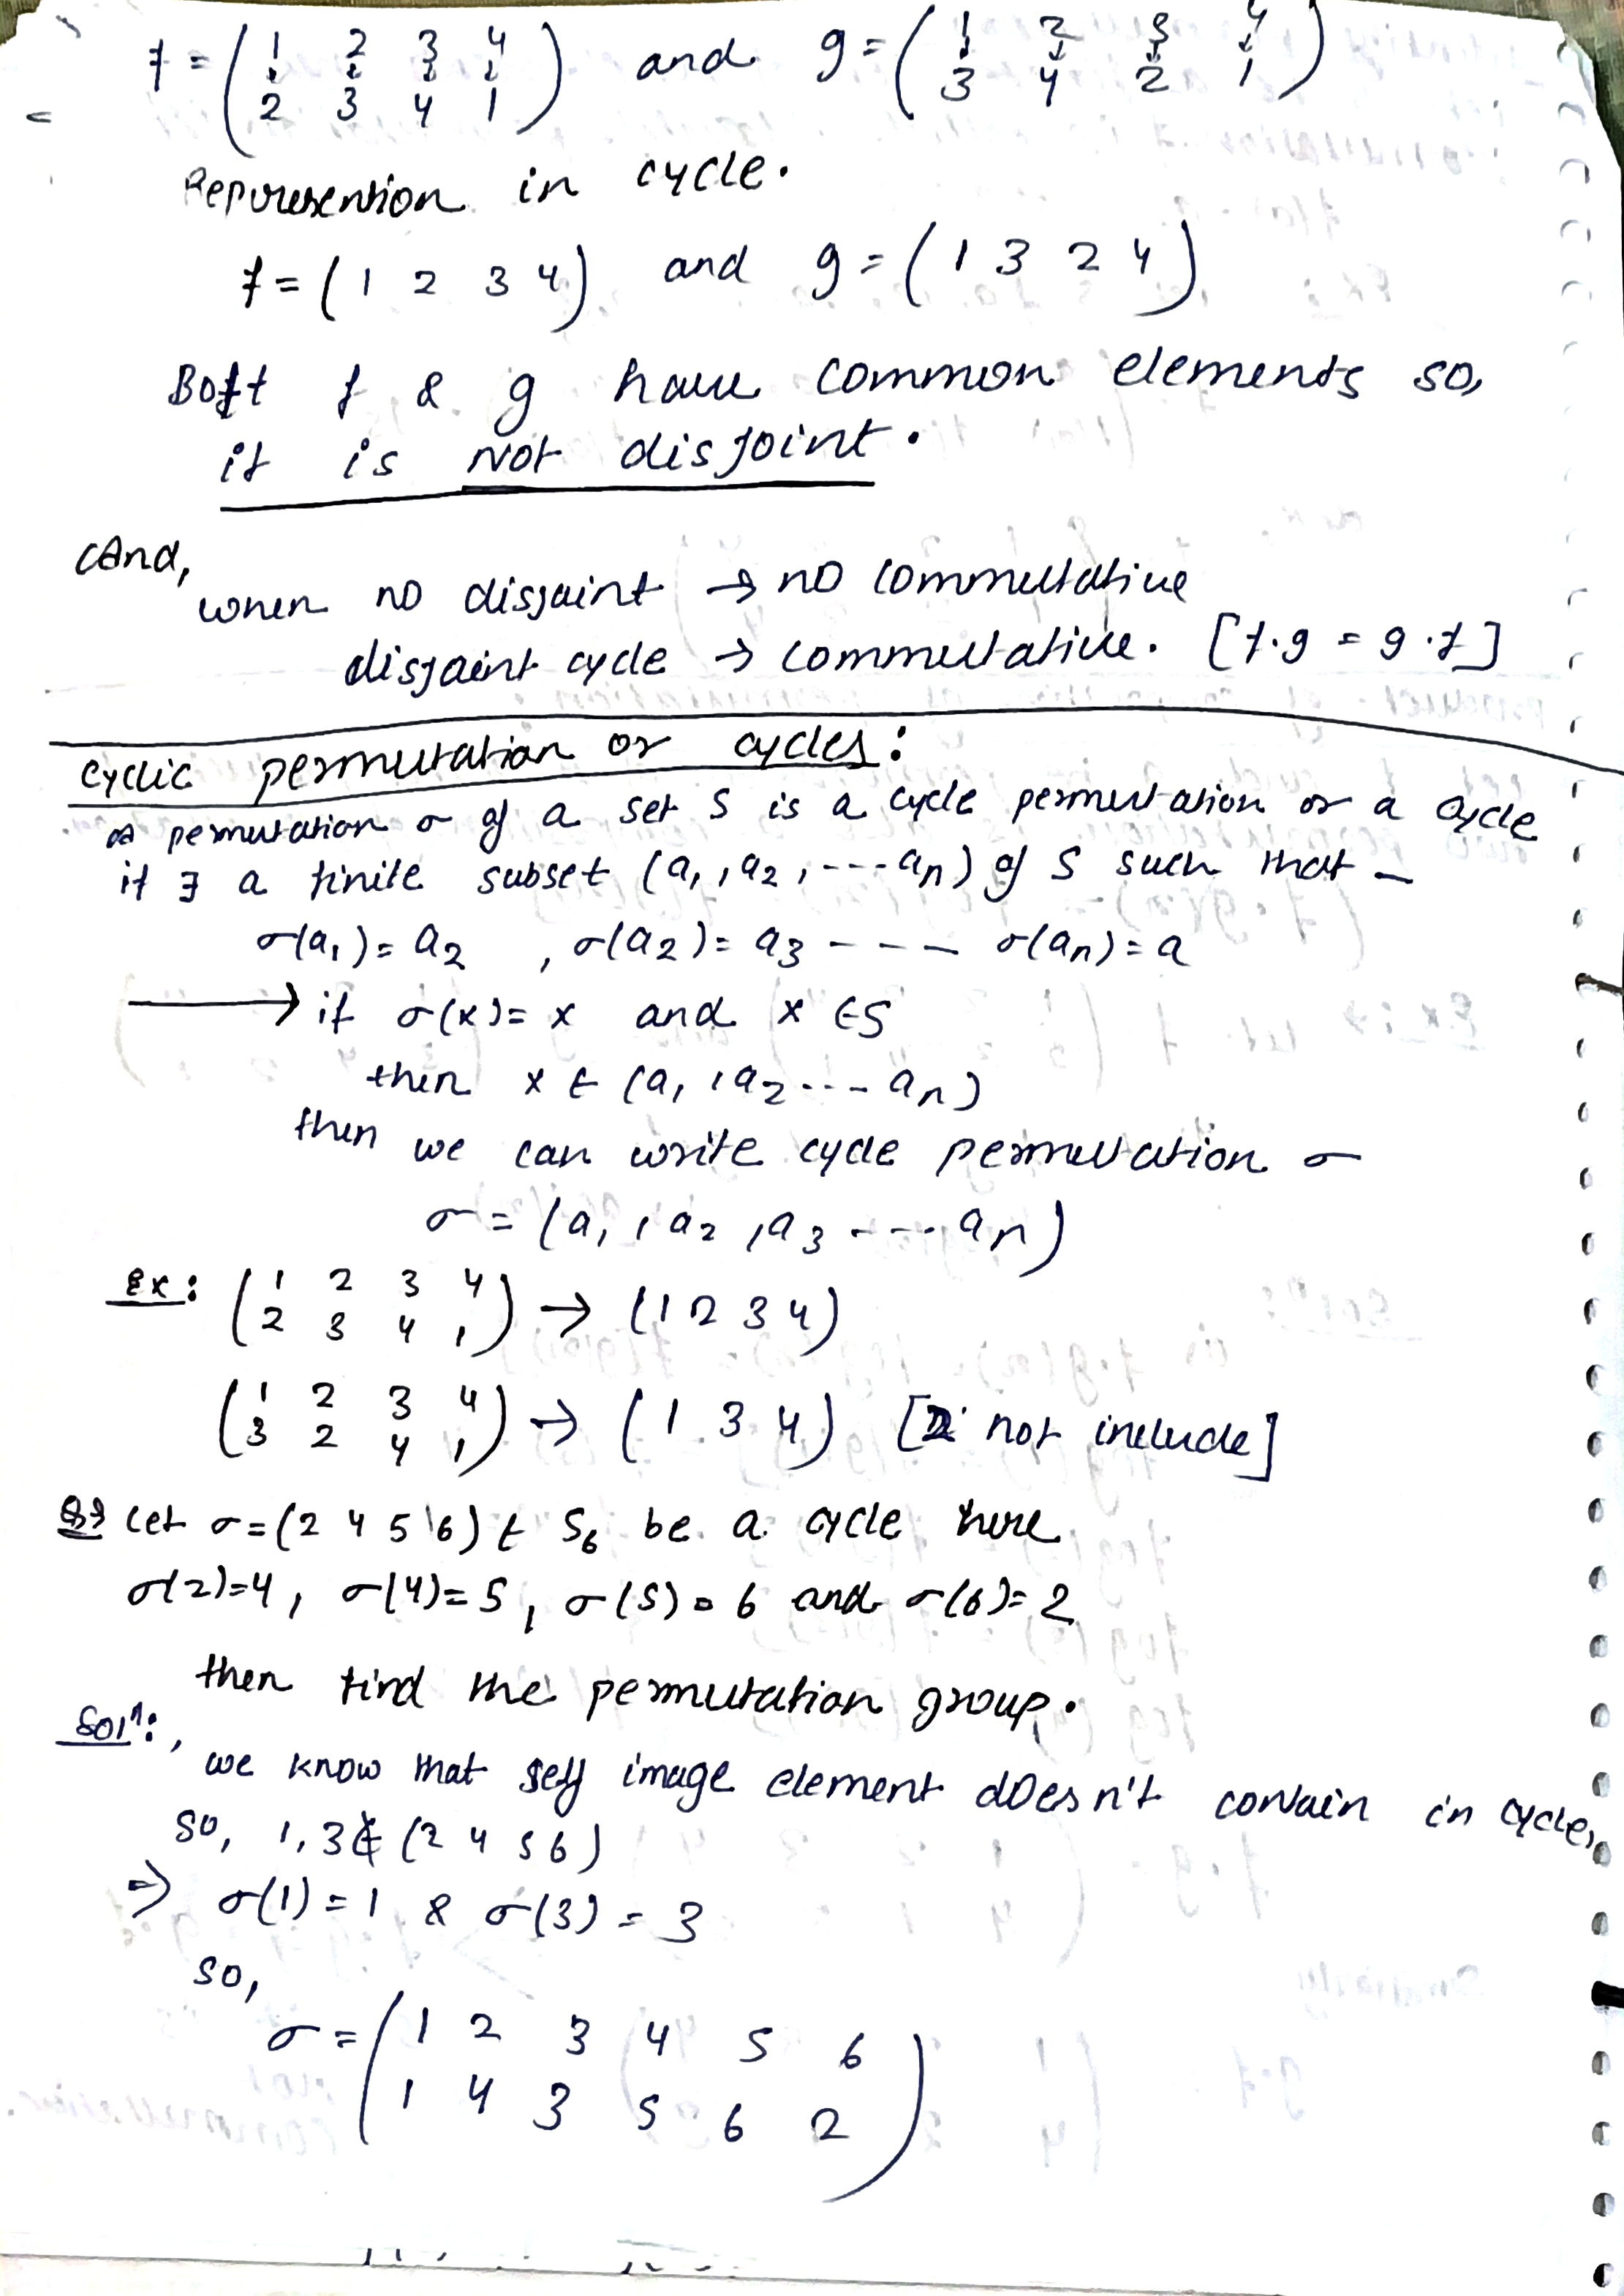 f = ( 1 2 3 4 ) and g = ( 1 2 3 4 )
2 3 4 1 3 4 2 1
Represention in cycle.
f = ( 1 2 3 4 ) and g = ( 1 3 2 4 )
Both f & g have common elements so,
it is Not disjoint.
And,
when no disjoint → no commutative
disjoint cycle → commutative. [f.g = g.f]
Cyclic permutation or cycles:
A permutation σ of a set S is a cycle permutation or a cycle
if ∃ a finite subset (a₁, a₂, ---- aₙ) of S such that –
σ(a₁) = a₂ , σ(a₂) = a₃ - - - σ(aₙ) = a
→ if σ(x) = x and x ∈ S
then x ∈ (a₁, a₂ --- aₙ)
then we can write cycle permutation σ
σ = (a₁, a₂, a₃ ---- aₙ)
Ex: ( 1 2 3 4 ) → (1 2 3 4)
2 3 4 1
( 1 2 3 4 ) → ( 1 3 4 ) [2 not include]
3 2 4 1
Let σ = (2 4 5 6) ∈ S₆ be a cycle here
σ(2)=4, σ(4)=5, σ(5)=6 and σ(6)=2
then find the permutation group.
Solⁿ:,
we know that self image element doesn't contain in cycle,
so, 1, 3 ∉ (2 4 5 6)
⇒ σ(1) = 1 & σ(3) = 3
so,
σ = ( 1 2 3 4 5 6 )
1 4 3 5 6 2